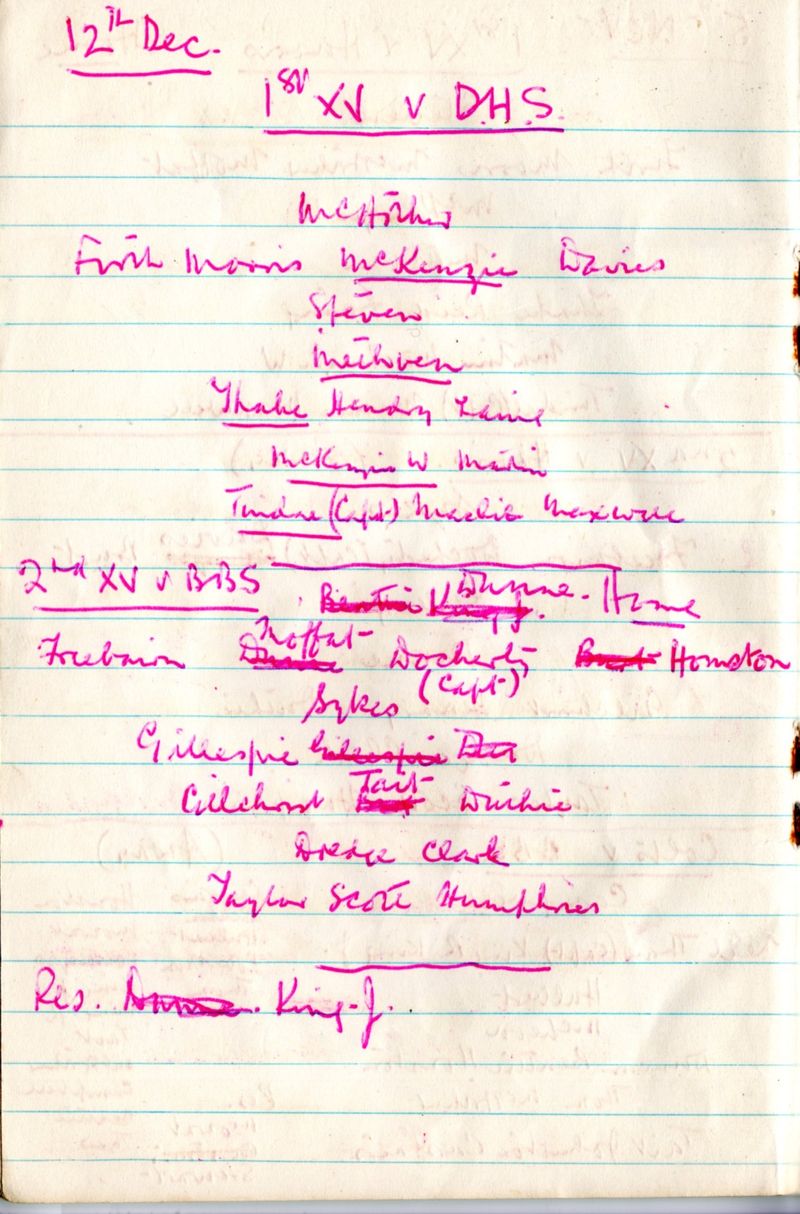 12th Dec.
1st XV v D.H.S.
Firth Morris McKenzie Davies
Steven
Methven
Thake Hendry Laing
McKenzie W Martin
(Capt) Maxwell
2nd XV v BBS Bentie King J. Dunne. Home
Moffat
Freebairn Dunne Docherty Houston
(Capt)
Sykes
Gillespie Gillespie
Tait
Gilchrist Duthie
Dredge Clark
Taylor Scott Humphries
Res. Dunne. King-J.